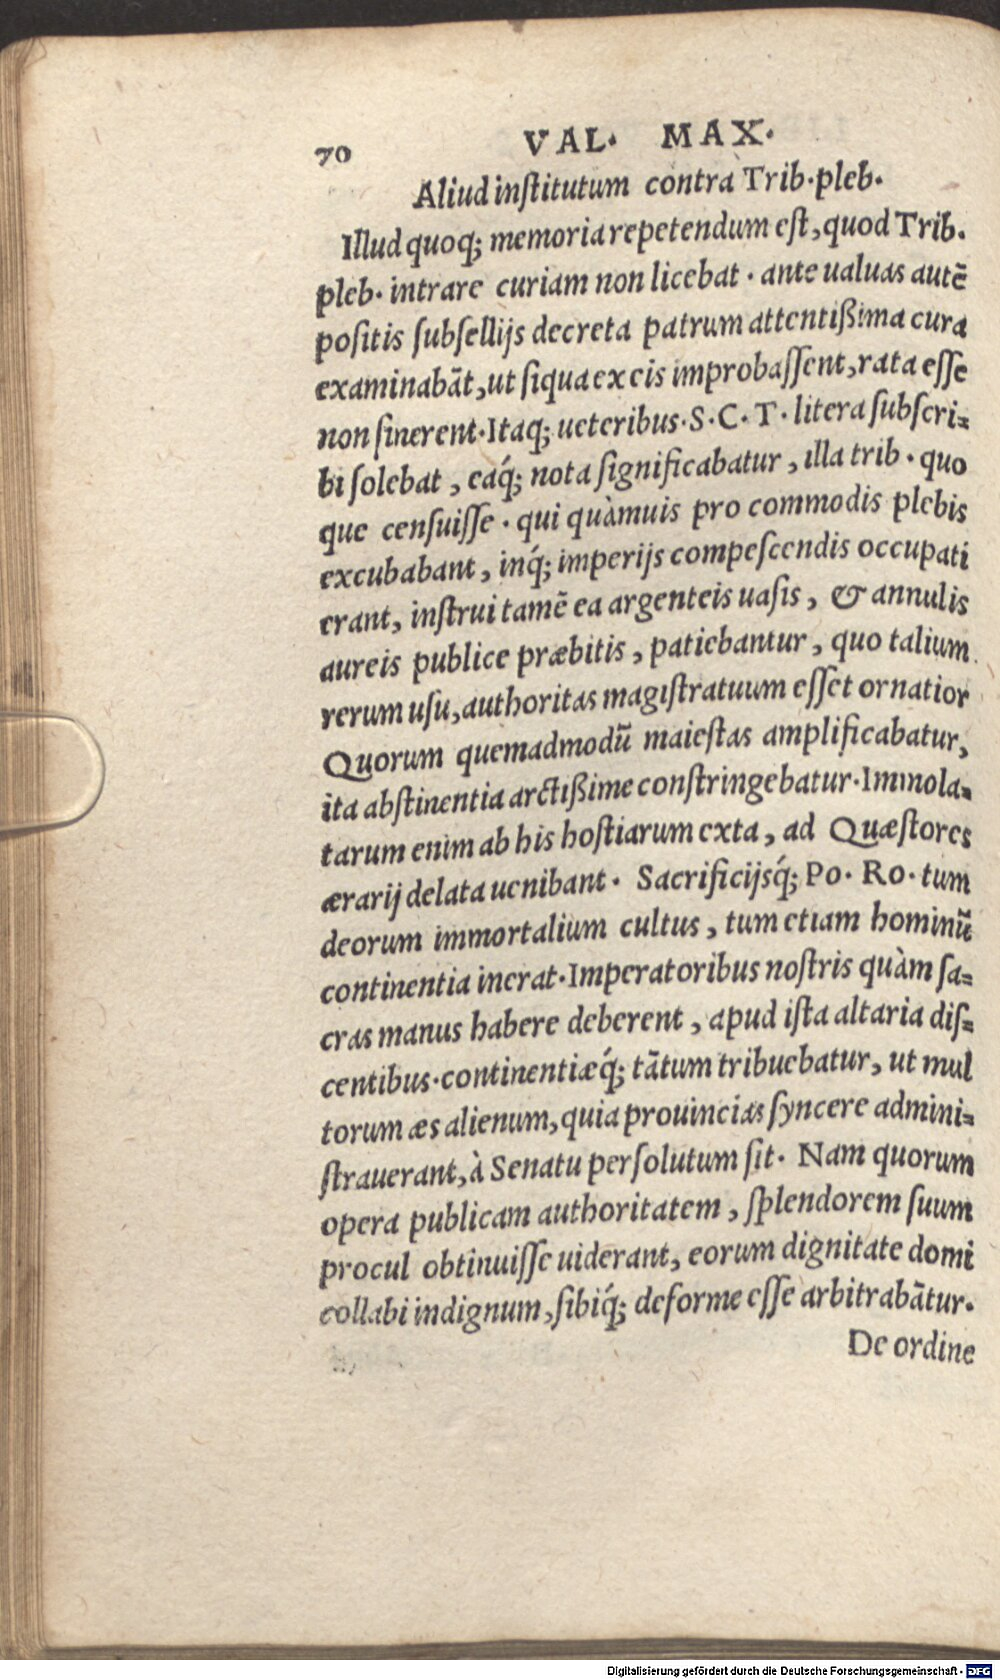 70 VAL. MAX.
Aliud inſtitutum contra Trib. pleb.
Illud quoq; memoria repetendum eſt, quod Trib.
pleb. intrare curiam non licebat. ante ualuas autē
poſitis ſubſellijs decreta patrum attentißima cura
examinabāt, ut ſiqua ex eis improbaſſent, rata eſſe
non ſinerent. Itaq; ueteribus. S. C. T. litera ſubſcri-
bi ſolebat, eaq́; nota ſignificabatur, illa trib. quo
que cenſuiſſe. qui quàmuis pro commodis plebis
excubabant, inq́; imperijs compeſcendis occupati
erant, inſtrui tamē ea argenteis uaſis, & annulis
aureis publice præbitis, patiebantur, quo talium
rerum uſu, authoritas magiſtratuum eſſet ornatior
Quorum quemadmodū maieſtas amplificabatur,
ita abſtinentia arctißime conſtringebatur. Immola-
tarum enim ab his hoſtiarum exta, ad Quæſtores
ærarij delata uenibant. Sacrificijsq́; Po. Ro. tum
deorum immortalium cultus, tum etiam hominū
continentia inerat. Imperatoribus noſtris quàm ſa-
cras manus habere deberent, apud iſta altaria diſ-
centibus. continentiæq́; tātum tribuebatur, ut mul
torum æs alienum, quia prouincias ſyncere admini-
ſtrauerant, à Senatu perſolutum ſit. Nam quorum
opera publicam authoritatem, ſplendorem ſuum
procul obtinuiſſe uiderant, eorum dignitate domi
collabi indignum, ſibiq́; deforme eſſe arbitrabātur.
De ordine
Digitalisierung gefördert durch die Deutsche Forschungsgemeinschaft - DFG